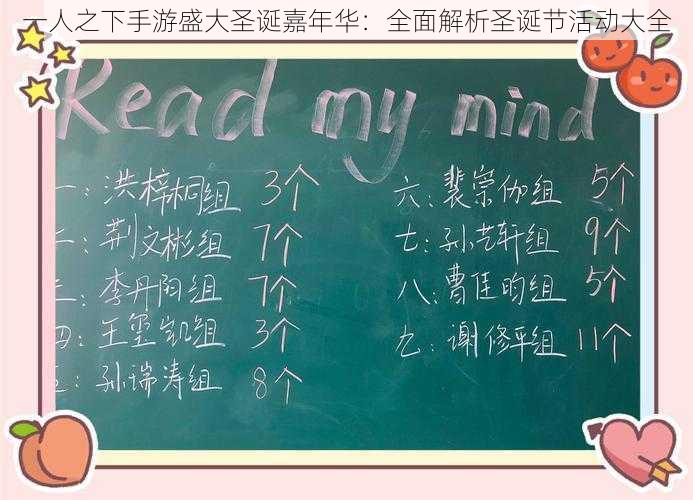 一人之下手游盛大圣诞嘉年华：全面解析圣诞节活动大全
Read my mind
一：洪梓桐组 3个
二：荆文彬组 7个
三：李丹阳组 7个
四：王玺凯组 3个
五：孙瑞涛组 8个
六：裴崇伽组 5个
七：孙艺轩组 9个
八：曹佳昀组 5个
九：谢修平组 11个